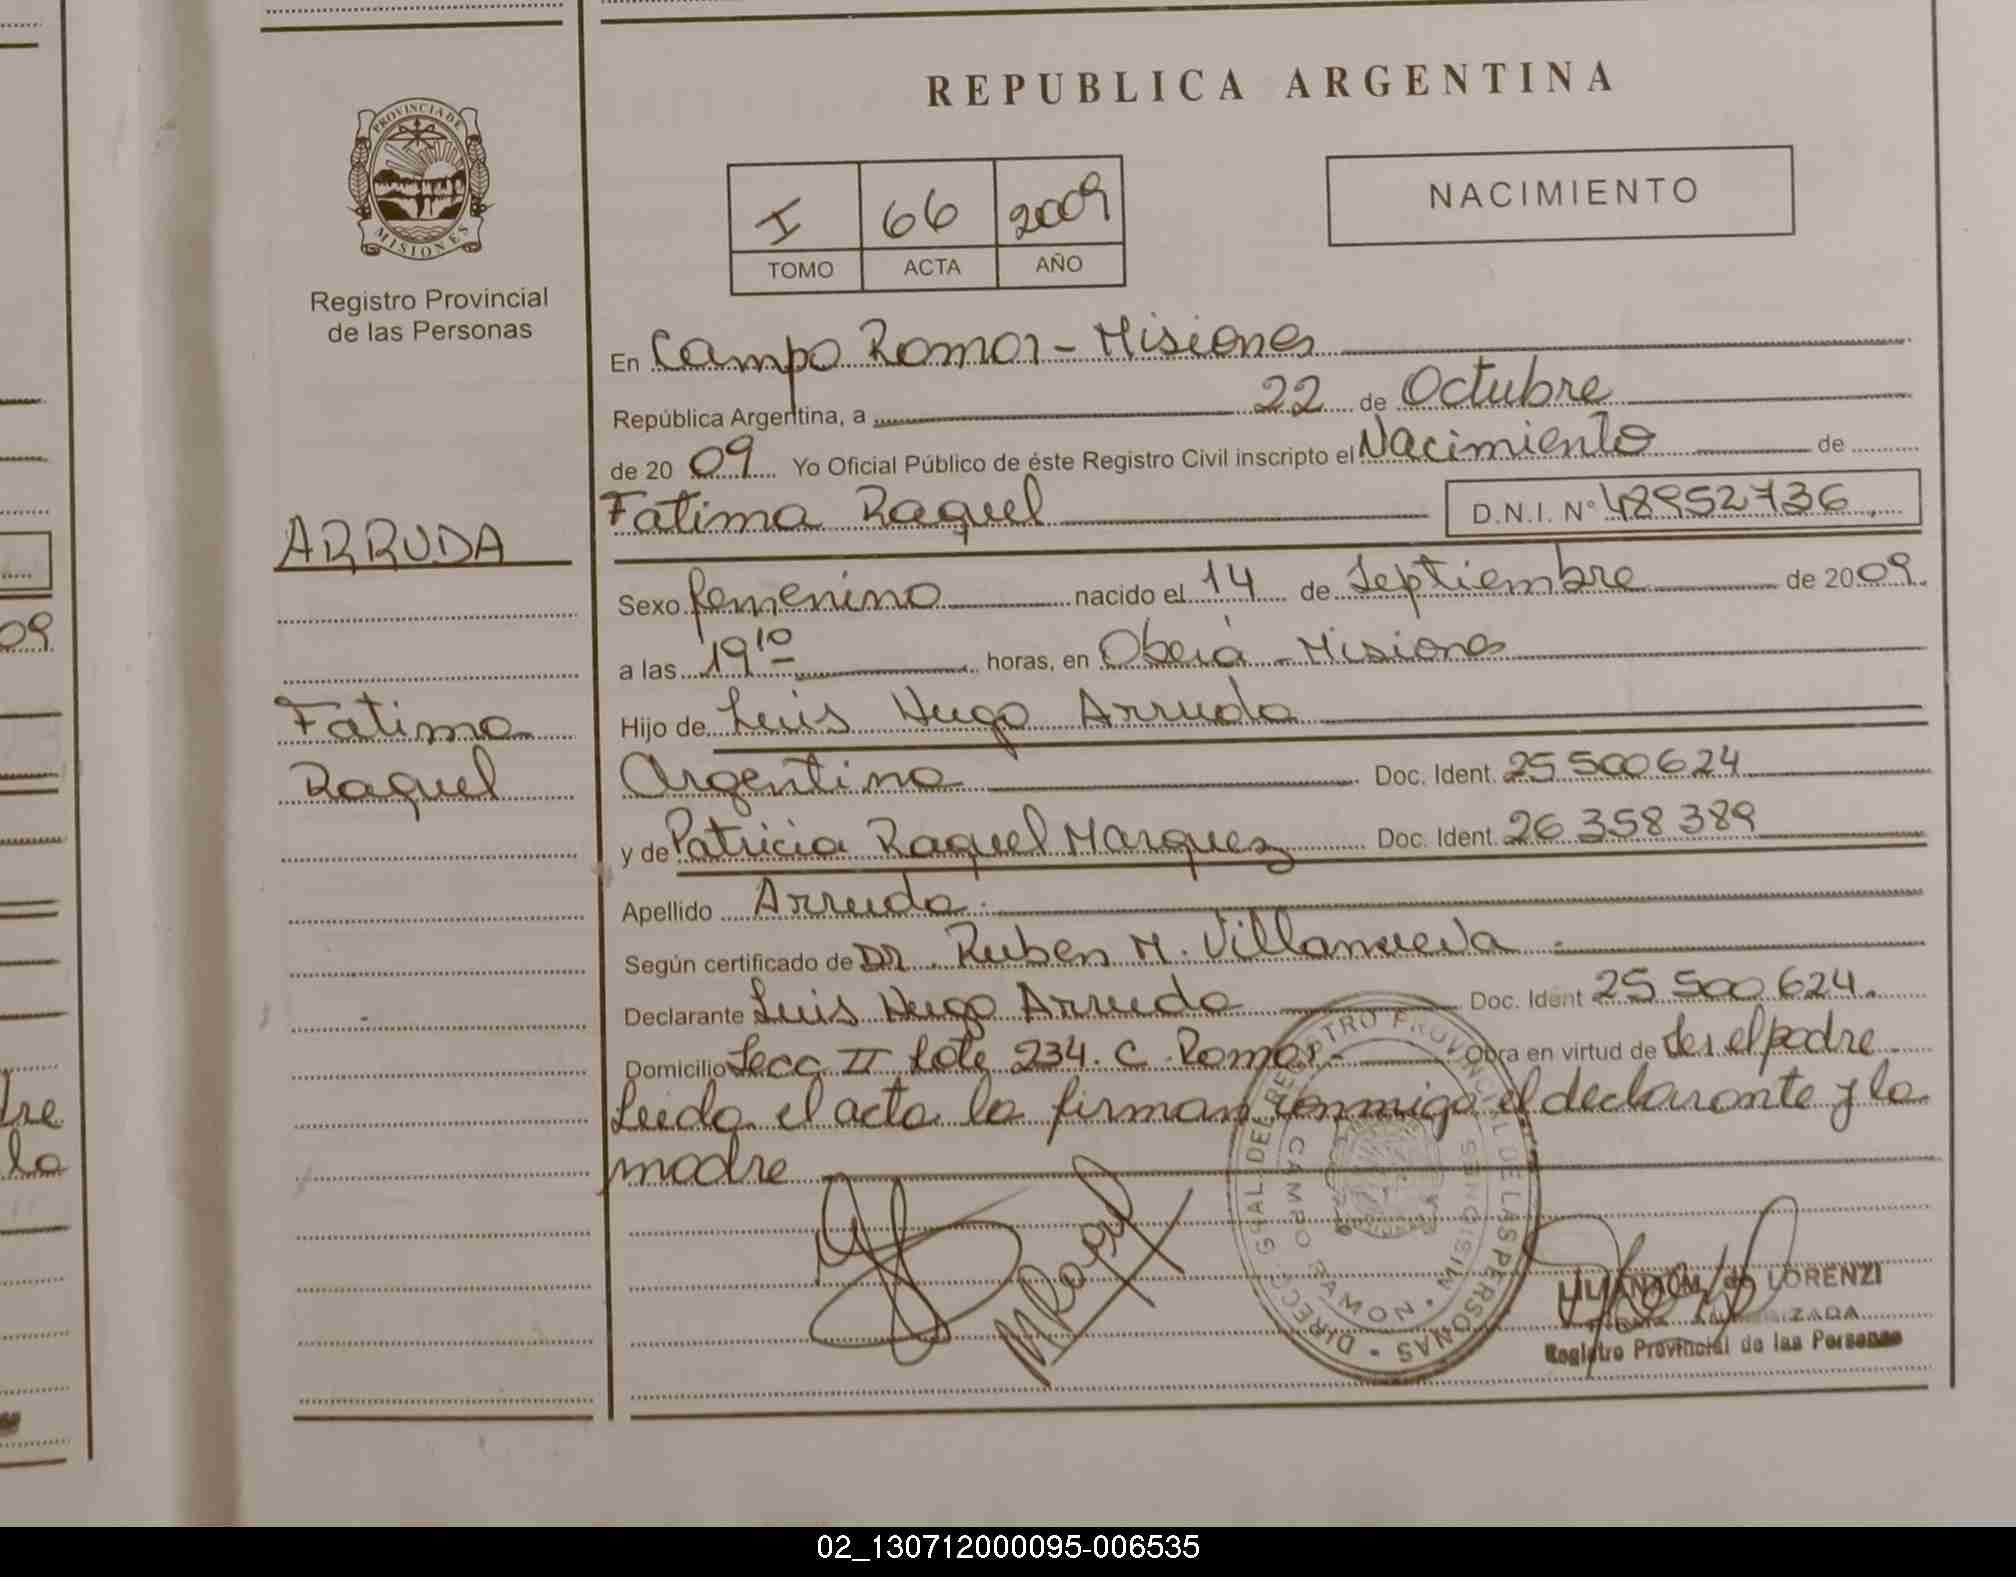 REPUBLICA ARGENTINA
PROVINCIA DE
MISIONES
Registro Provincial
de las Personas
I 66 2009
TOMO ACTA AÑO
NACIMIENTO
En Campo Ramon - Misiones
República Argentina, a 22 de Octubre
de 20 09 Yo Oficial Público de éste Registro Civil inscripto el Nacimiento de
Fatima Raquel D.N.I. Nº 48952736
ARRUDA
Sexo femenino nacido el 14 de Septiembre de 20 09.
a las 19 10 horas, en Oberá - Misiones
Hijo de Luis Hugo Arruda
Fatima
Raquel
Argentino Doc. Ident. 25 500 624
y de Patricia Raquel Marquez Doc. Ident. 26 358 389
Apellido Arruda.
Según certificado de DR. Ruben M. Villanueva
Declarante Luis Hugo Arruda Doc. Ident 25 500 624.
Domicilio Secc II Lote 234. C. Ramon - Obra en virtud de ser el padre
Leida el acta la firman conmigo el declarante y la
madre
DIRECC. GRAL. DEL REGISTRO PROVINCIAL DE LAS PERSONAS
CAMPO RAMON • MISIONES
de LORENZI
Registro Provincial de las Personas
09
dre
la
02_130712000095-006535